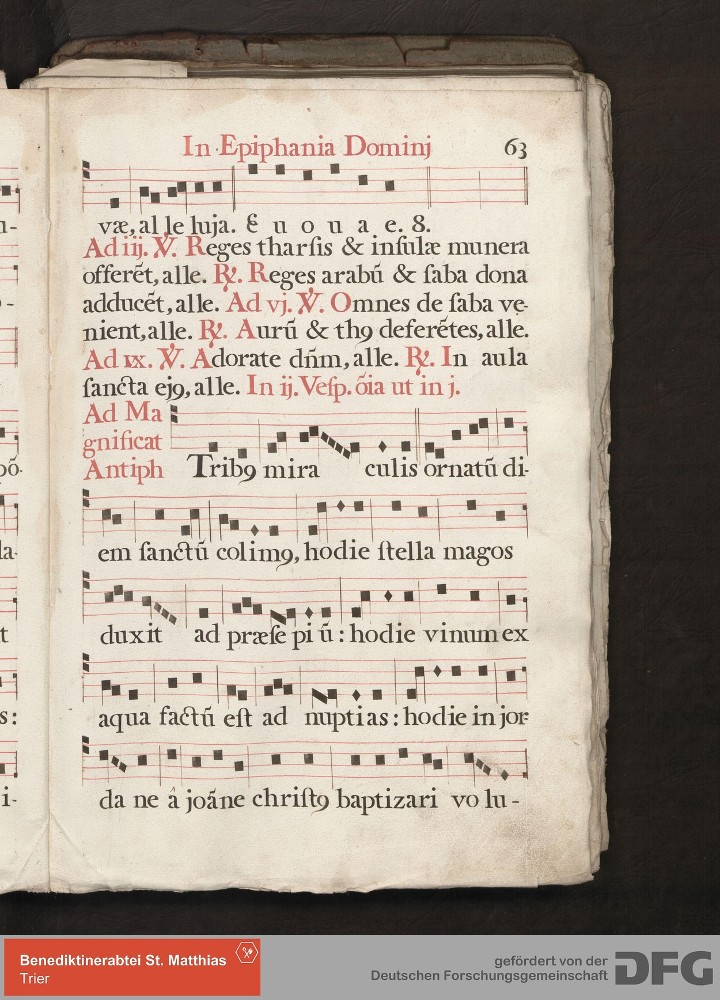 In Epiphania Dominj 63
u-
væ, al le luja. E u o u a e. 8.
Ad iij. ℣. Reges tharsis & insulæ munera
offerẽt, alle. ℟. Reges arabũ & saba dona
adducẽt, alle. Ad vj. ℣. Omnes de saba ve-
nient, alle. ℟. Aurũ & thꝯ deferẽtes, alle.
Ad ıx. ℣. Adorate dñm, alle. ℟. In aula
sancta ejꝯ, alle. In ij. Vesp. õia ut in j.
Ad Ma
gnificat
Antiph Tribꝯ mira culis ornatũ di-
põ-
em sanctũ colimꝯ, hodie stella magos
la-
duxit ad præse pi ũ : hodie vinum ex
t
aqua factũ est ad nuptias : hodie in jor-
s:
da ne â joãne christꝯ baptizari vo lu -
i-
Benediktinerabtei St. Matthias
Trier
gefördert von der
Deutschen Forschungsgemeinschaft DFG